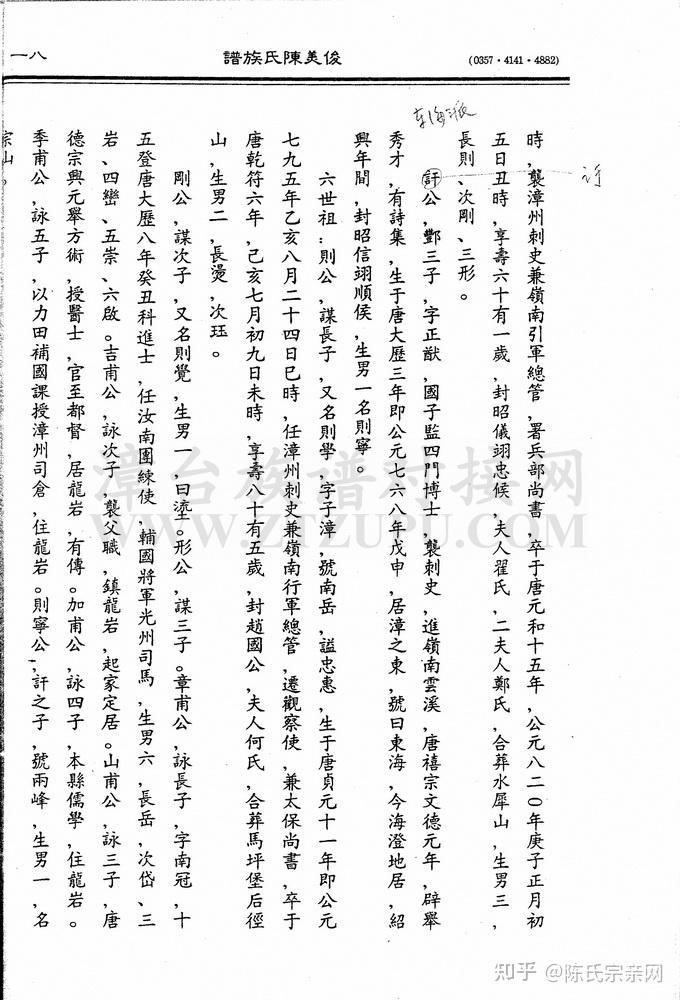 一八
譜族氏陳美俊
(0357·4141·4882)
時,襲漳州刺史兼嶺南引軍總管,署兵部尚書,卒于唐元和十五年,公元八二〇年庚子正月初
五日丑時,享壽六十有一歲,封昭儀翊忠候,夫人翟氏,二夫人鄭氏,合葬水犀山,生男三,
長則、次剛、三形。
訏公,酆三子,字正猷,國子監四門博士,襲刺史,進嶺南雲溪,唐禧宗文德元年,辟舉
秀才,有詩集,生于唐大歷三年即公元七六八年戊申,居漳之東,號曰東海,今海澄地居,紹
興年間,封昭信翊順侯,生男一名則寧。
六世祖:則公,謀長子,又名則學,字子漳,號南岳,謚忠惠,生于唐貞元十一年即公元
七九五年乙亥八月二十四日巳時,任漳州刺史兼嶺南行軍總管,遷觀察使,兼太保尚書,卒于
唐乾符六年,己亥七月初九日未時,享壽八十有五歲,封趙國公,夫人何氏,合葬馬坪堡后徑
山,生男二,長燙,次玨。
剛公,謀次子,又名則覺,生男一,曰塗。形公,謀三子。章甫公,詠長子,字南冠,十
五登唐大歷八年癸丑科進士,任汝南團練使,輔國將軍光州司馬,生男六,長岳,次岱、三
岩、四巒、五崇、六啟。吉甫公,詠次子,襲父職,鎮龍岩,起家定居。山甫公,詠三子,唐
德宗興元舉方術,授醫士,官至都督,居龍岩,有傳。加甫公,詠四子,本縣儒學,住龍岩。
季甫公,詠五子,以力田補國課授漳州司倉,住龍岩。則寧公,訏之子,號兩峰,生男一,名
宗山。
东海派
訏
漳台族谱对接网
WWW.ZTZUPU.COM
知乎 @陈氏宗亲网